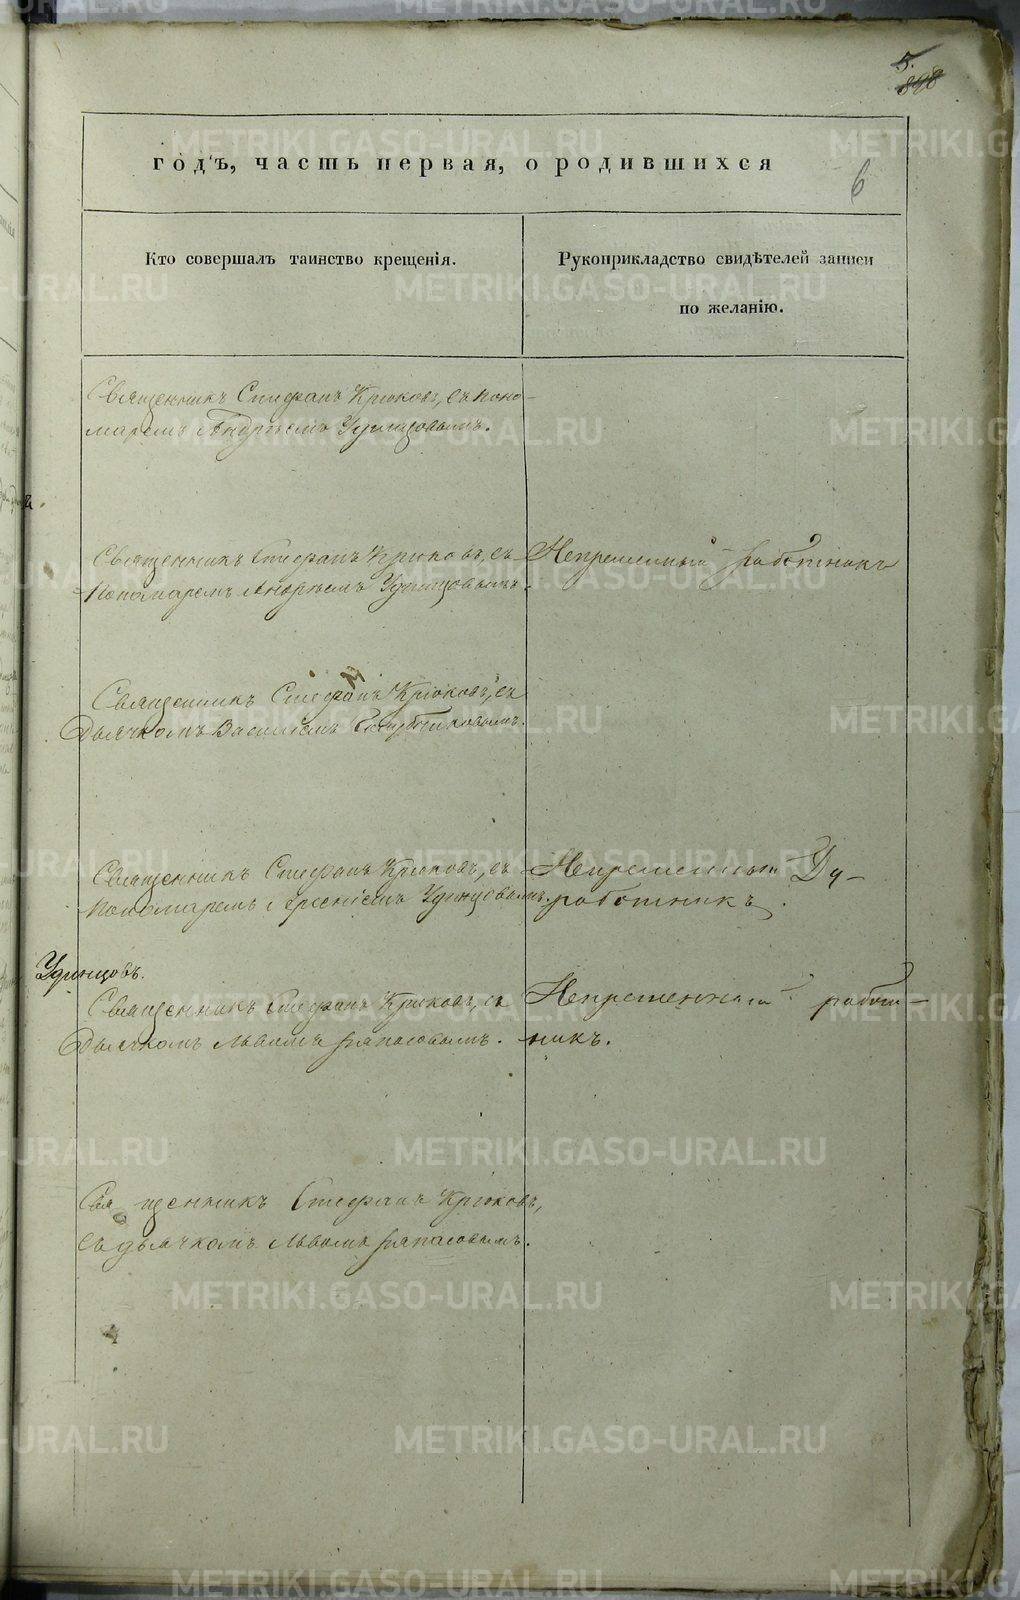 5.
898
годъ, часть первая, о родившихся
6
Кто совершалъ таинство крещенія.
Рукоприкладство свидѣтелей записи
по желанію.
Священникъ Стефанъ Крюковъ, съ поно-
маремъ Андреемъ Удинцовымъ.
Священникъ Стефанъ Крюковъ, съ
Пономаремъ Андреемъ Удинцовымъ.
Непременный работникъ
Священникъ Стефанъ Крюковъ, съ
Дьячкомъ Василіемъ
Священникъ Стефанъ Крюковъ, съ
Пономаремъ Арсеніемъ Удинцовымъ.
Непременный Ду-
работникъ.
Удинцовъ.
Священникъ Стефанъ Крюковъ, съ
Дьячкомъ Львомъ
Непременный работ-
никъ.
Священникъ Стефанъ Крюковъ,
съ дьячкомъ Львомъ
METRIKI.GASO-URAL.RU